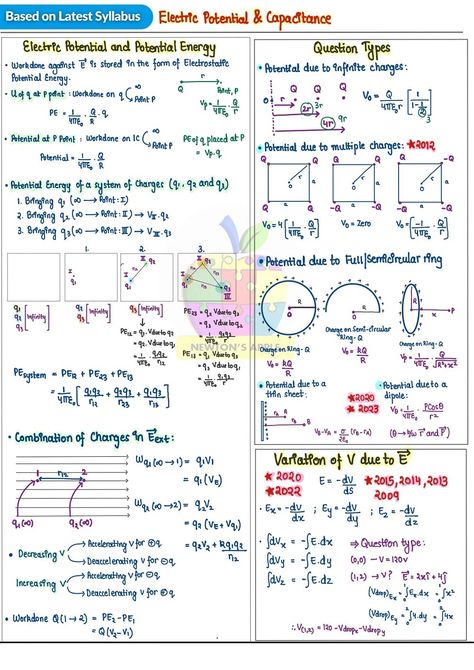 Based on Latest Syllabus
Electric Potential & Capacitance
Electric Potential and Potential Energy
• Workdone against E⃗ is stored in the form of Electrostatic
Potential Energy.
• U of q at P point : Workdone on q (∞ → Point P)
Q r Point, P
PE = 1/4πE₀ · Q/R · q
Vp = 1/4πE₀ · Q/r
• Potential at P Point : Workdone on 1C (∞ → Point P)
Potential = 1/4πE₀ · Q/R
PE of q placed at P
= Vp·q
• Potential Energy of a system of Charges (q₁, q₂ and q₃)
1. Bringing q₁ (∞ → Point : I)
2. Bringing q₂ (∞ → Point : II) → V_II·q₂
3. Bringing q₃ (∞ → Point : III) → V_III·q₃
1. 2. 3.
q₂ q₃ [Infinity]
q₃ [Infinity]
PE₁₂ = q₁ V due to q₂
= q₂ V due to q₁
= 1/4πE₀ · q₁q₂/r₁₂
PE₂₃ = q₂ V due to q₃
= q₃ V due to q₂
PE₁₃ = q₁ V due to q₃
= q₃ V due to q₁
NEWTON'S APPLE
PEsystem = PE₁₂ + PE₂₃ + PE₁₃
= 1/4πE₀ [q₁q₂/r₁₂ + q₂q₃/r₂₃ + q₁q₃/r₁₃]
• Combination of Charges in E⃗ext :
1 r₁₂ 2
q₁(∞) q₂(∞)
Wq₁(∞→1) = q₁V₁
= q₁ (VE)
Wq₂(∞→2) = q₂V₂
= q₂ (VE + Vq₁)
= q₂V₂ + kq₁q₂/r₁₂
• Decreasing V
Accelerating V for ⊕q
Deaccelerating V for ⊖q
Increasing V
Accelerating V for ⊖q
Deaccelerating V for ⊕q
• Workdone Q(1→2) = PE₂ - PE₁
= Q(V₂-V₁)
Question Types
• Potential due to infinite charges :
Q Q Q
0 r 2r 3r 4r 9r
V₀ = Q/4πE₀r [1/(1-1/3)]
• Potential due to multiple charges : ★2012
Q Q Q Q Q -Q
r a r a r a
Q Q -Q -Q -Q -Q
V₀ = 4[1/4πE₀ Q/r]
V₀ = Zero
V₀ = [-1/4πE₀ Q/r]
• Potential due to Full/Semicircular ring
R R R x P
Charge on Ring - Q
V₀ = kQ/R
Charge on Semi-circular
Ring - Q
V₀ = kQ/R
Charge on Ring - Q
Vp = 1/4πE₀ · Q/√R²+x²
• Potential due to a
thin sheet :
★2020
★2023
A B
V_B-V_A = σ/2E₀ (r_B-r_A)
• Potential due to a
dipole :
V₀ = 1/4πE₀ · PCosθ/r²
(θ → b/w r⃗ and P⃗)
Variation of V due to E⃗
★2020
★2022
E = -dV/dS
★2015, 2014, 2013
2009
• Ex = -dV/dx ; Ey = -dV/dy ; Ez = -dV/dz
• ∫dVx = -∫E.dx
∫dVy = -∫E.dy
∫dVz = -∫E.dz
⇒ Question type :
(0,0) → V = 120V
(1,2) → V ? E⃗ = 2xî + 4ĵ
(Vdrop)Ex = ∫E.dx = ∫x²
(Vdrop)Ey = ∫4.dy = ∫4x
∴ V(1,2) = 120 - Vdropx - Vdropy